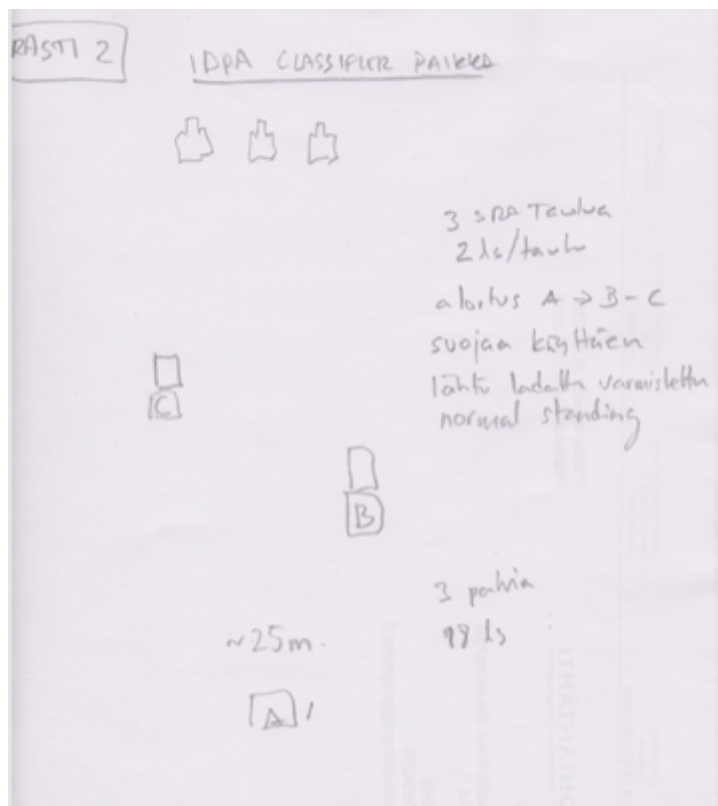 RASTI 2
IDPA CLASSIFIER PAIKKA
3 SRA Taulua
2 ls/taulu
aloitus A → B - C
suojaa käyttäen
lähtö ladattu varmistettu
normal standing
C
B
3 paikkaa
18 ls
~25m.
A